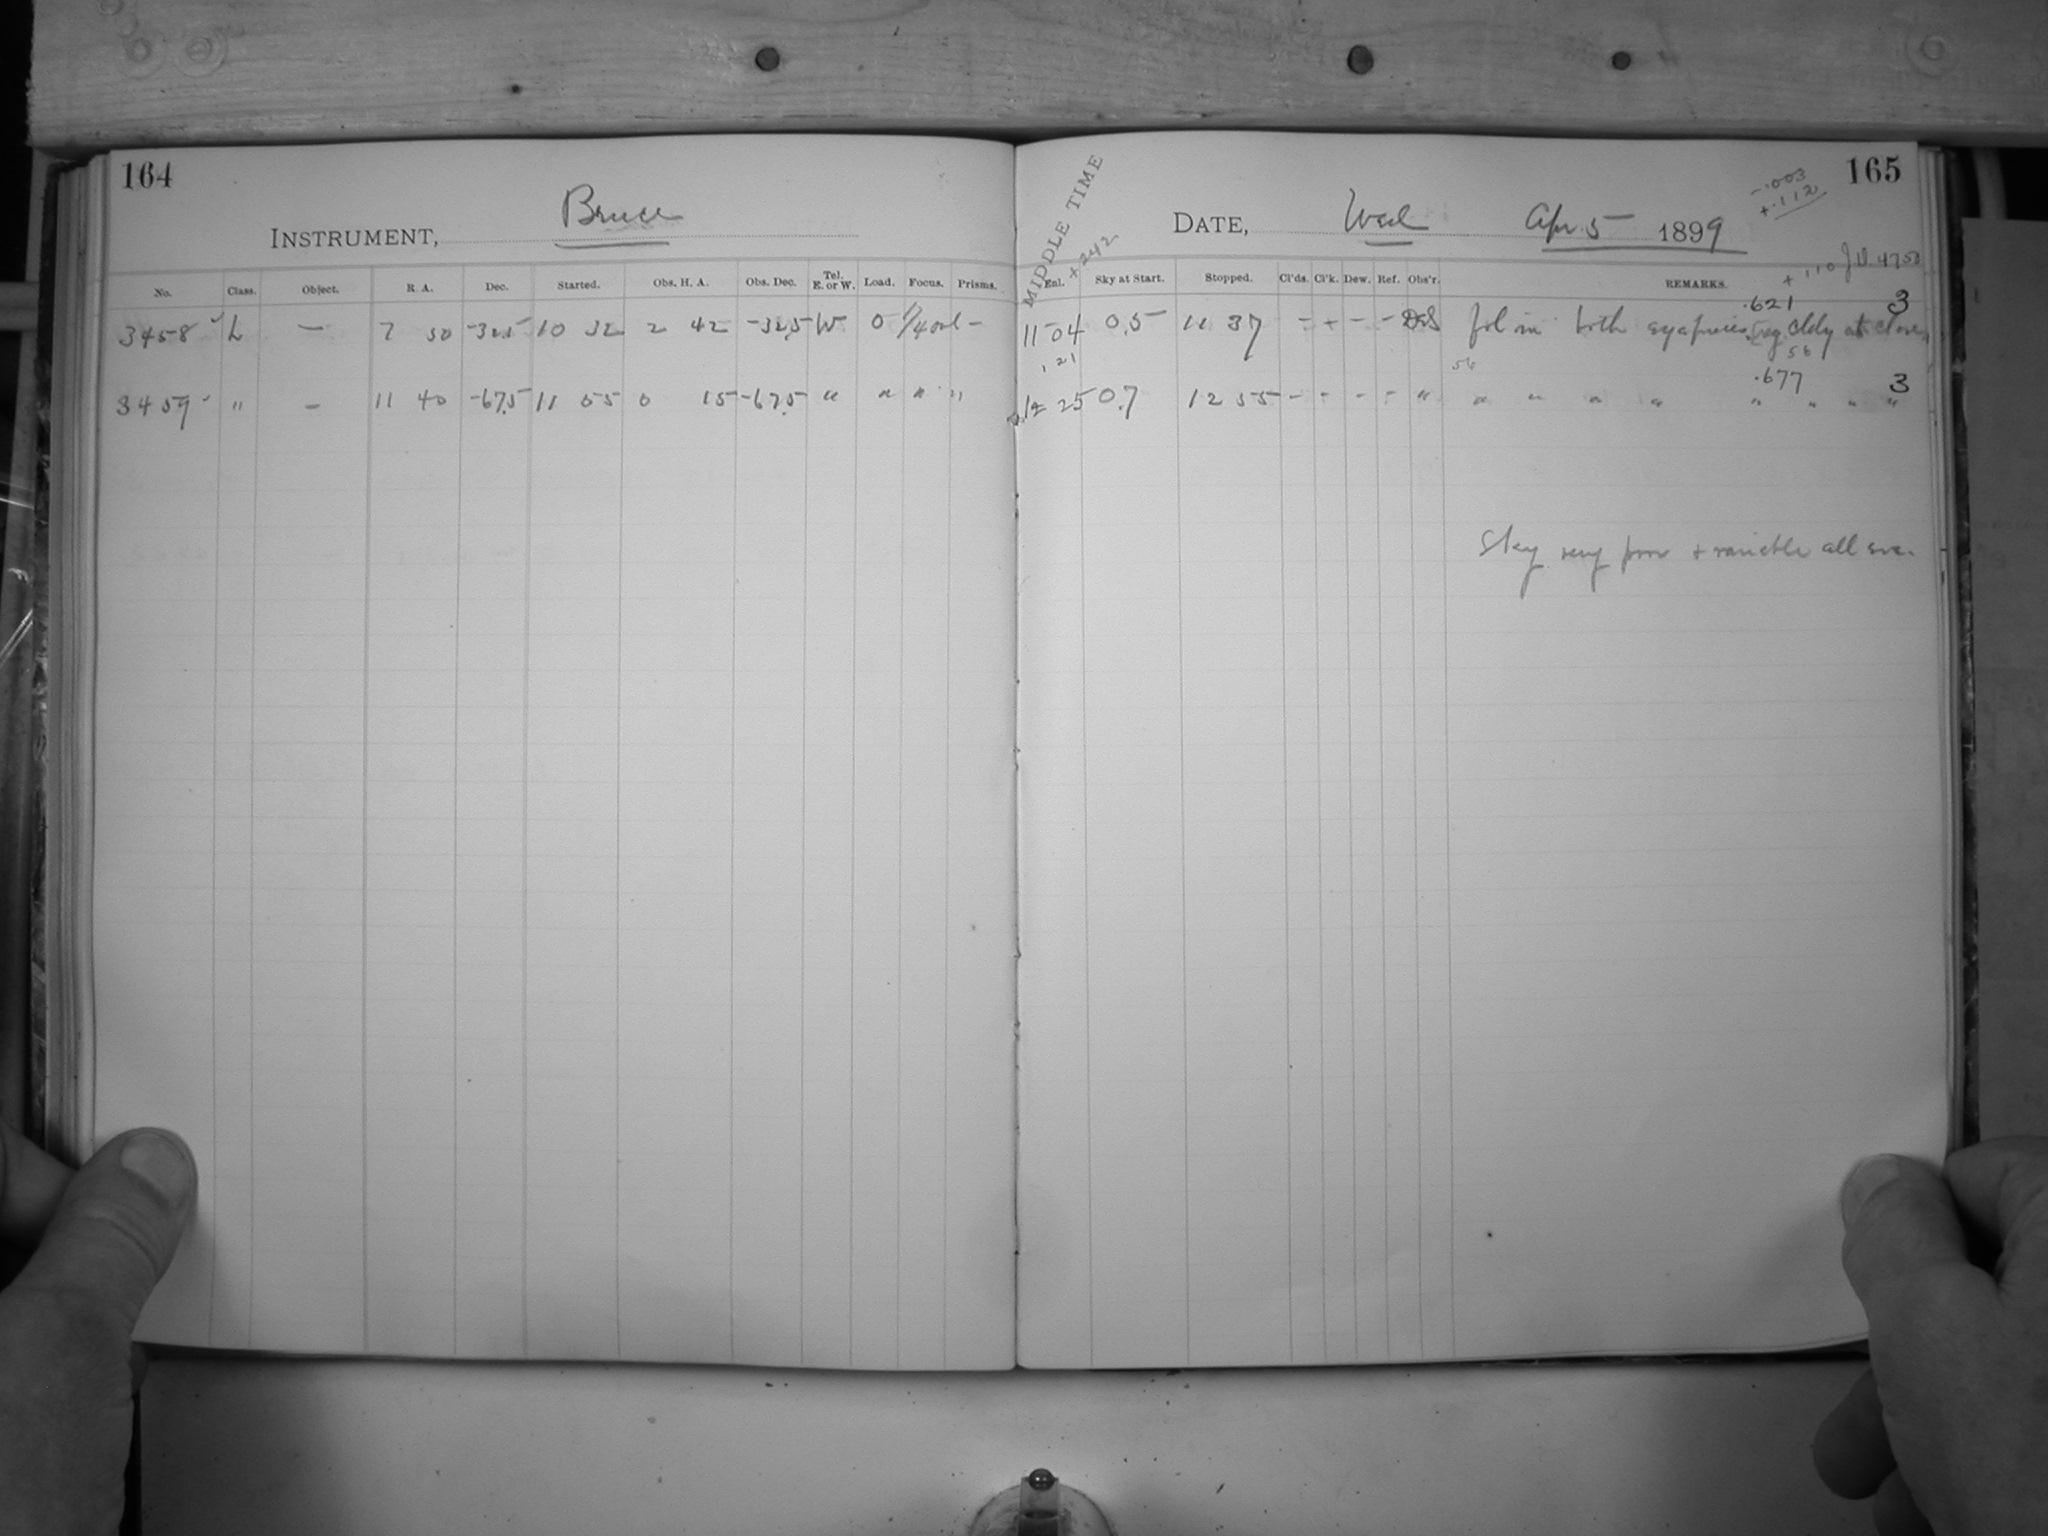 164
Bruce
INSTRUMENT,
No. Class. Object. R. A. Dec. Started. Obs. H. A. Obs. Dec. Tel. E. or W. Load. Focus. Prisms.
3458 L — 7 50 -32.5 10 32 2 42 -32.5 W 0 –
3459 " – 11 40 -67.5 11 55 0 15 -67.5 " " " "
165
-.003
+.112
MIDDLE TIME
+242
DATE, Wed Apr. 5 1899
+.110 J.D. 4750
Enl. Sky at Start. Stopped. Cl'ds. Cl'k. Dew. Ref. Obs'r. REMARKS.
.621 3
11 04 0.5 11 37 – + – – fol in both cldy at close
, 21
56 56
.677 3
12 25 0.7 12 55 – – – – " " " " " " " " "
Sky very poor + variable all eve.